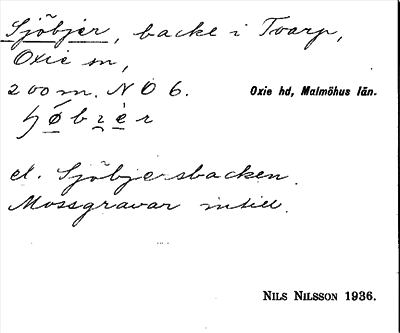 Sjöbjer, backe i Tvarp,
Oxie sn,
200 m. N O 6.
Oxie hd, Malmöhus län.
el. Sjöbjersbacken.
Mossgravar intill.
NILS NILSSON 1936.